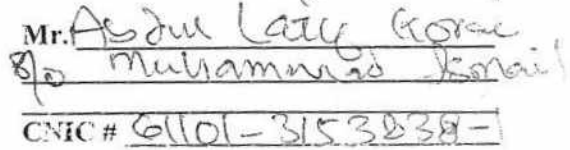 Mr. Abdul Laiq Korai
S/o Muhammad Ismail
CNIC # 61101-3153838-1